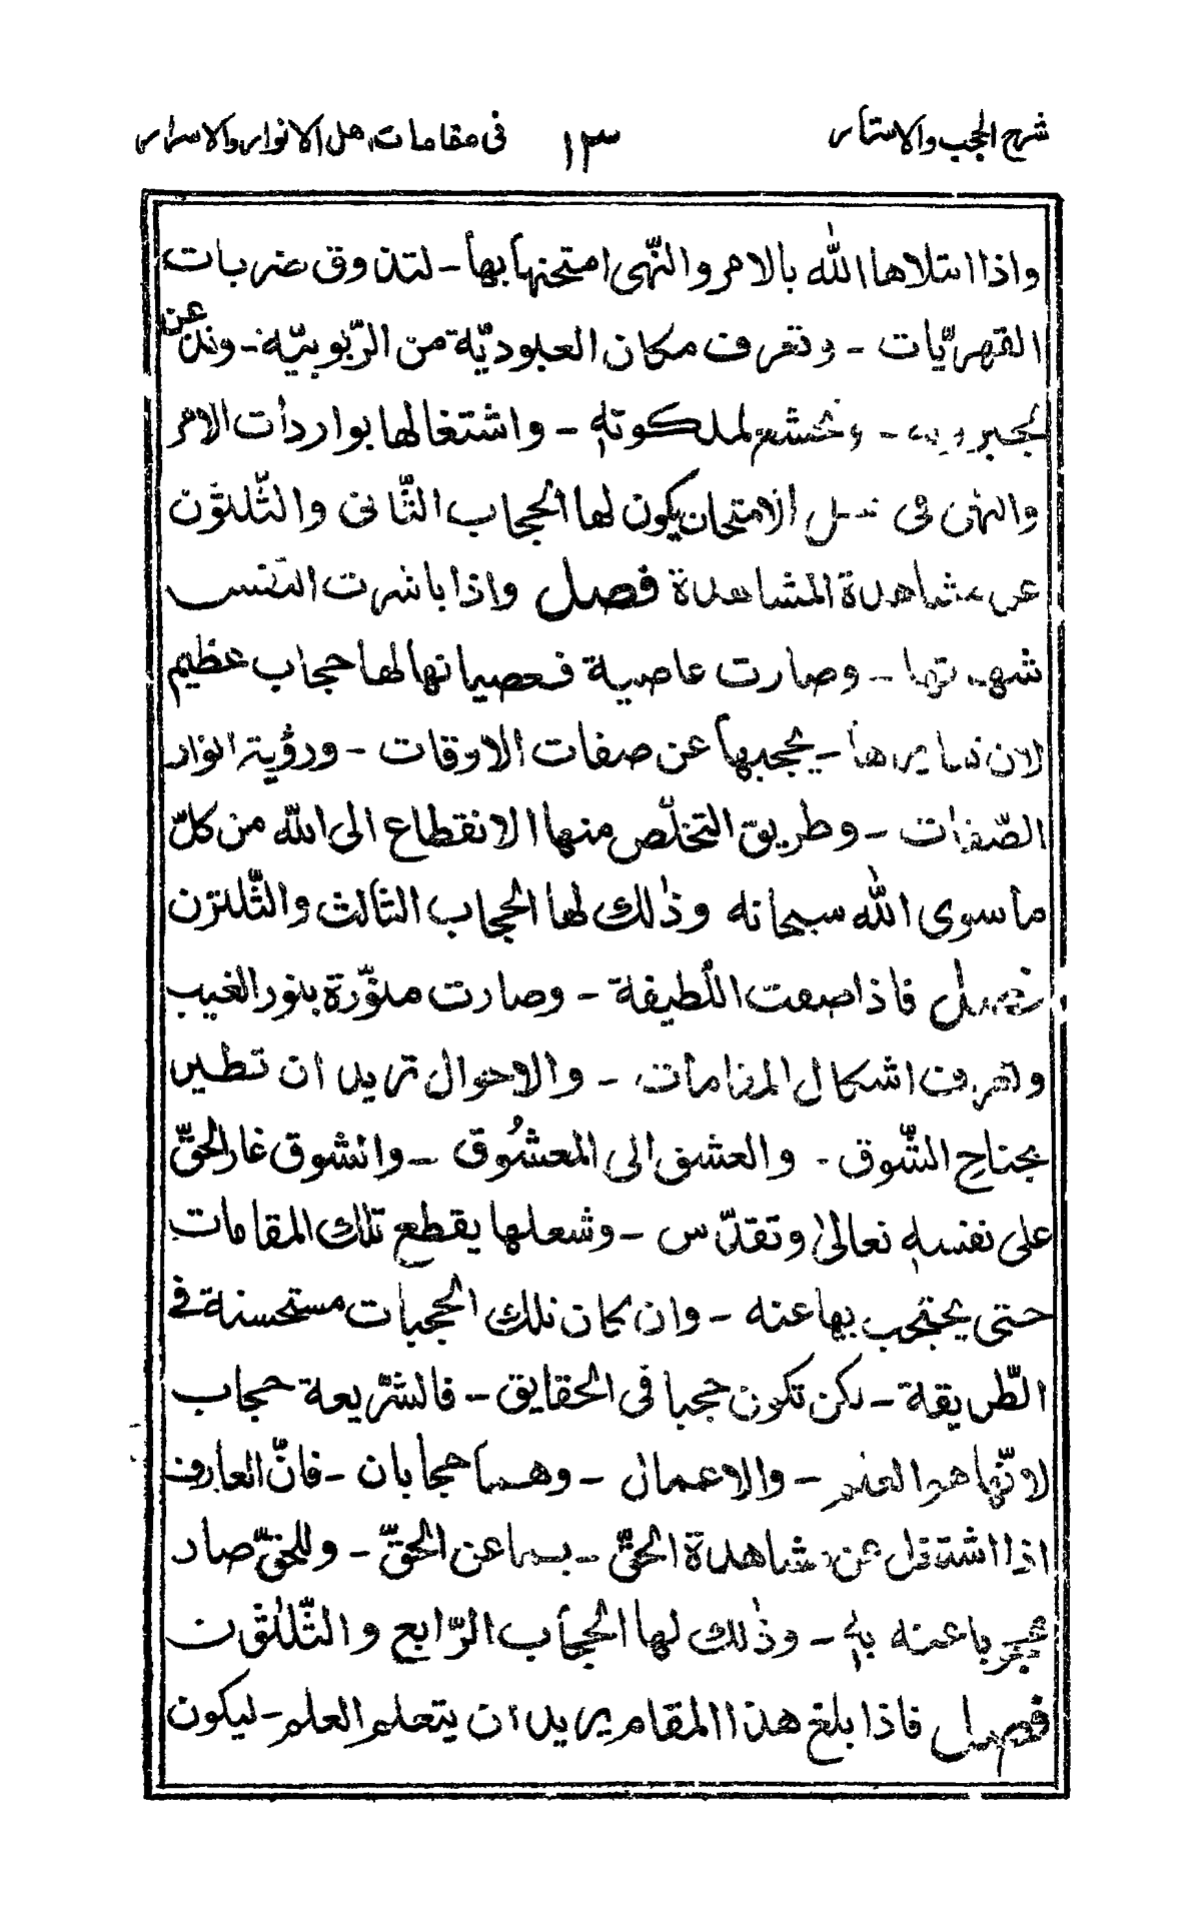 شرح الحجب والاستار ١٣ فى مقامات اهل الانوار والاسرار
واذا ابتلاها الله بالامر والنّهى امتحنها بها - لتذوق ضربات
القهريّات - وتعرف مكان العبوديّة من الرّبوبيّة - وتذعن
لجبروته - وتخشع لملكوته - واشتغالها بواردات الامر
والنهى فى الامتحان يكون لها الحجاب الثّانى والثّلثون
عن مشاهدة المشاهدة فصل واذا باشرت النفس
شهوتها - وصارت عاصية فعصيانها لها حجاب عظيم
لان يحجبها عن صفات الاوقات - ورؤية انوار
الصّفات - وطريق التخلّص منها الانقطاع الى الله من كلّ
ما سوى الله سبحانه وذٰلك لها الحجاب الثالث والثّلثون
فصل فاذا صفت اللّطيفة - وصارت منوّرة بنور الغيب
وتعرف اشكال المقامات - والاحوال تريد ان تطير
بجناح الشّوق - والعشق الى المعشُوق - والشوق غار الحقّ
على نفسه تعالىٰ وتقدّس - وشعلها يقطع تلك المقامات
حتى يحتجب بها عنه - وان كان تلك الحجبات مستحسنة فى
الطّريقة - لكن تكون حجبا فى الحقايق - فالشّريعة حجاب
لانّها هو العلم - والاعمال - وهما حجابان - فانّ العارف
اذا اشتغل عن مشاهدة الحقّ - بما عن الحقّ - وللحقّ صار
محجوبا عنه به - وذٰلك لها الحجاب الرّابع والثّلٰثون
فصل فاذا بلغ هذا المقام يريد ان يتعلم العلم - ليكون